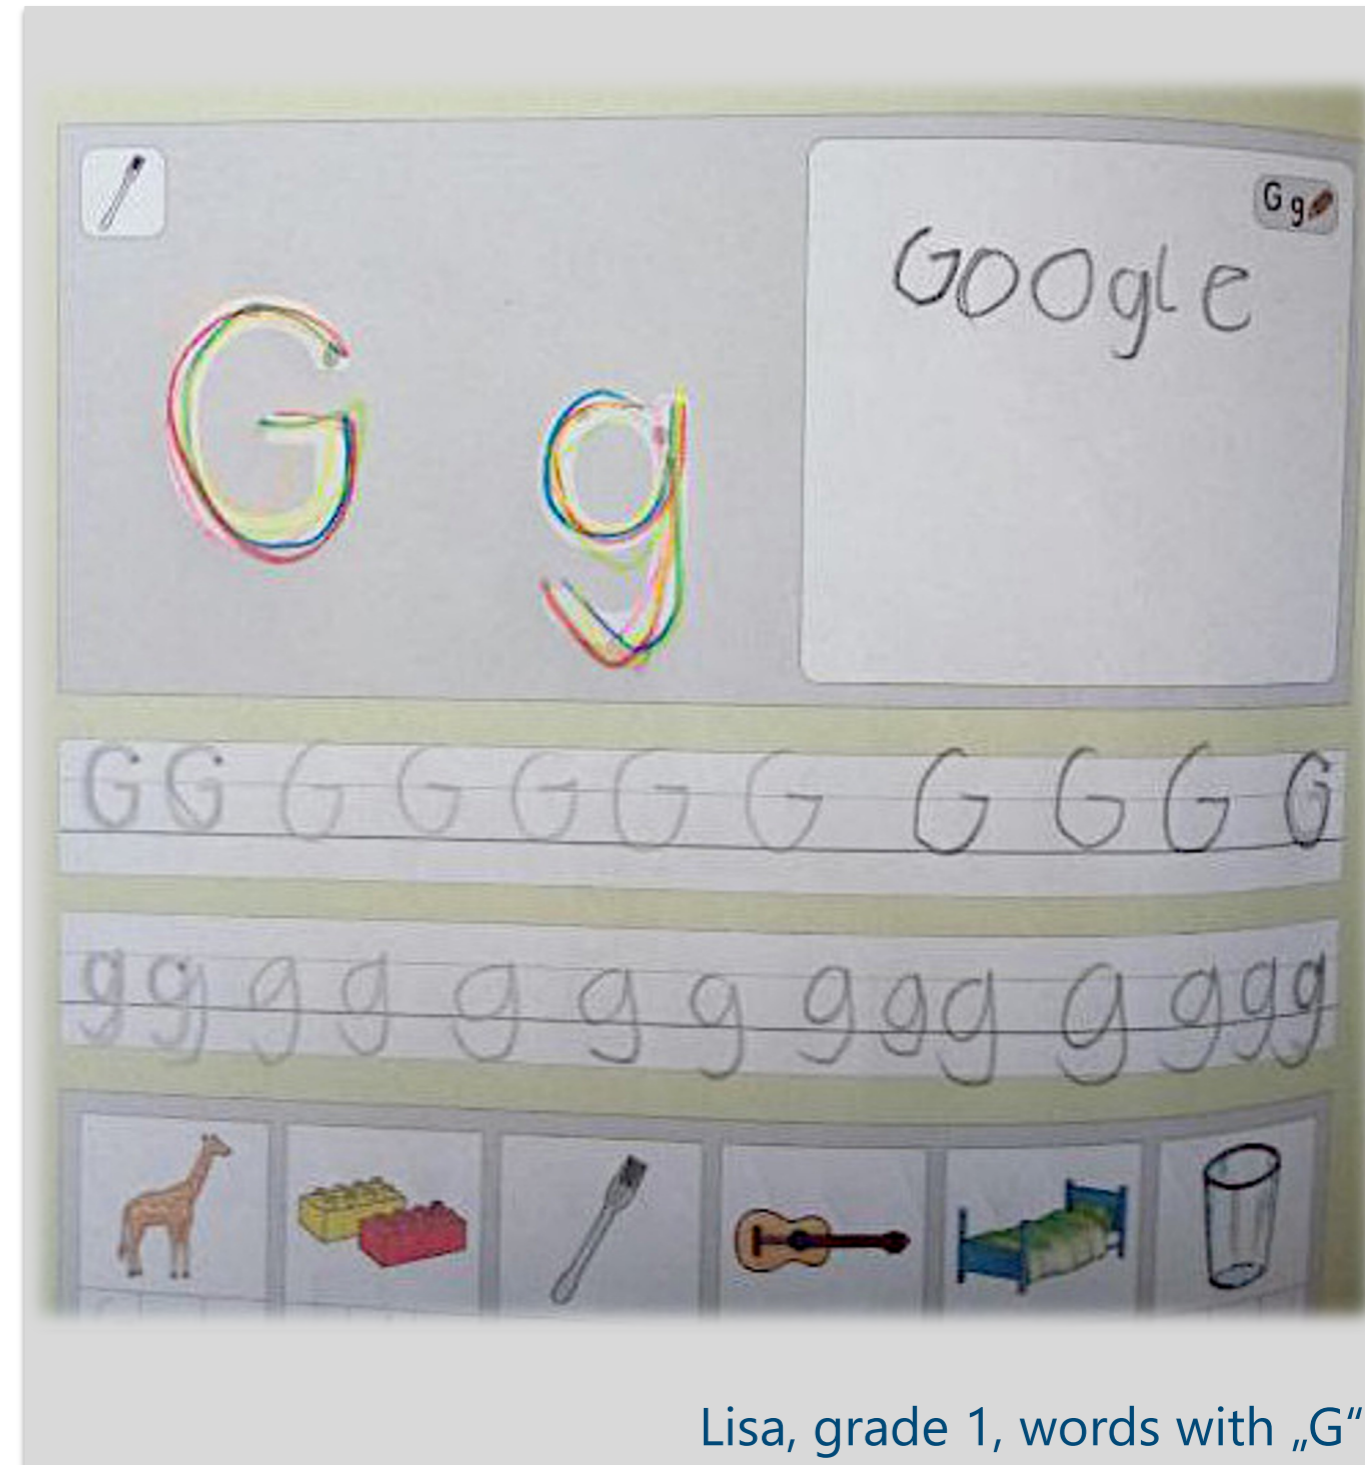 G g
G g
GOOgle
G G G G G G G G G G G
g g g g g g g g g g g g g g
Lisa, grade 1, words with „G“